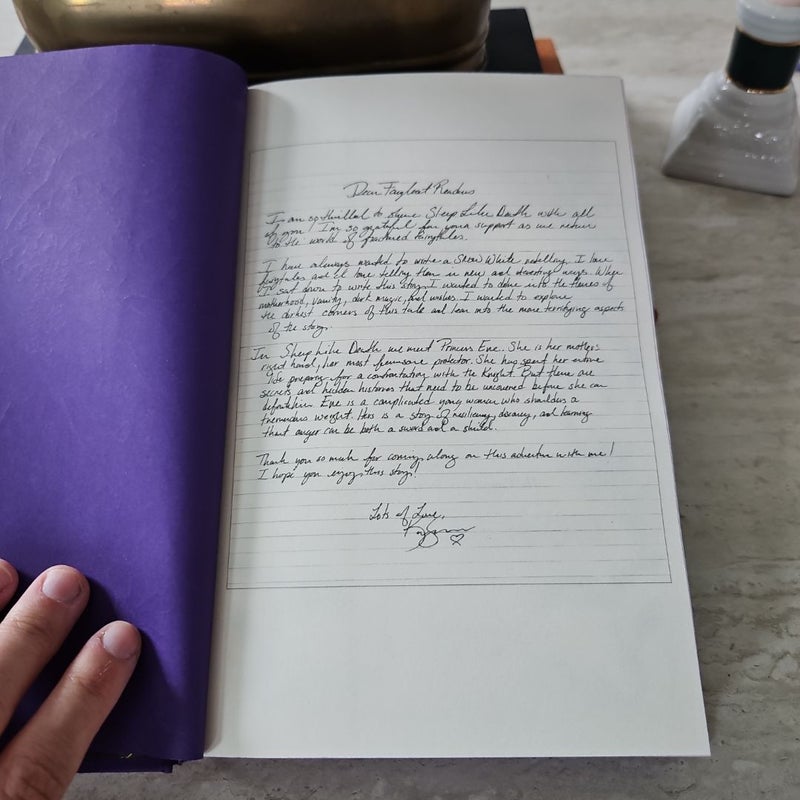 Dear Fairyloot Readers
I am so thrilled to share Sleep Like Death with all
of you! I'm so grateful for your support as we return
to the world of fractured fairytales.
I have always wanted to write a Snow White retelling. I love
fairytales and I love telling them in new and inventing ways. When
I sat down to write this story I wanted to delve into the themes of
motherhood, vanity, dark magic, and wishes. I wanted to explore
the darkest corners of this tale and lean into the more terrifying aspects
of the story.
In Sleep Like Death we meet Princess Eve. She is her mother's
right hand, her most fearsome protector. She has spent her entire
life preparing for a confrontation with the Knight. But there are
secrets and hidden histories that need to be uncovered before she can
defeat him. Eve is a complicated young woman who shoulders a
tremendous weight. Hers is a story of resiliency, discovery, and learning
that anger can be both a sword and a shield.
Thank you so much for coming along on this adventure with me!
I hope you enjoy this story!
Lots of Love,